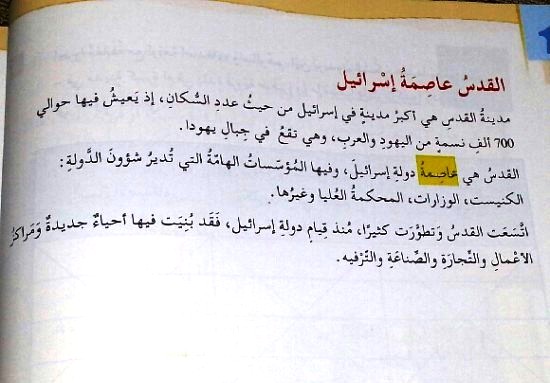 القدسُ عاصِمَةُ إسْرائيل
مدينةُ القدسِ هي أكبرُ مدينةٍ في إسرائيل من حيثُ عددِ السُّكانِ، إذ يَعيشُ فيها حوالي
700 ألفِ نسمةٍ من اليهودِ والعربِ، وهي تقعُ في جبالِ يهودا.
القدسُ هي عاصِمةُ دولةِ إسرائيلَ، وفيها المُؤسّساتُ الهامّةُ التي تُديرُ شؤونَ الدَّولةِ:
الكنيست، الوزارات، المحكمةُ العُليا وغيرُها.
اتَّسَعَت القدسُ وَتطوَّرَت كثيرًا، مُنذ قِيامِ دولةِ إسرائيل، فَقَد بُنِيَت فيها أحياءٌ جديدةٌ وَمَراكزُ
الأعْمالِ والتِّجارَةِ والصِّناعَةِ والتَّرْفيه.